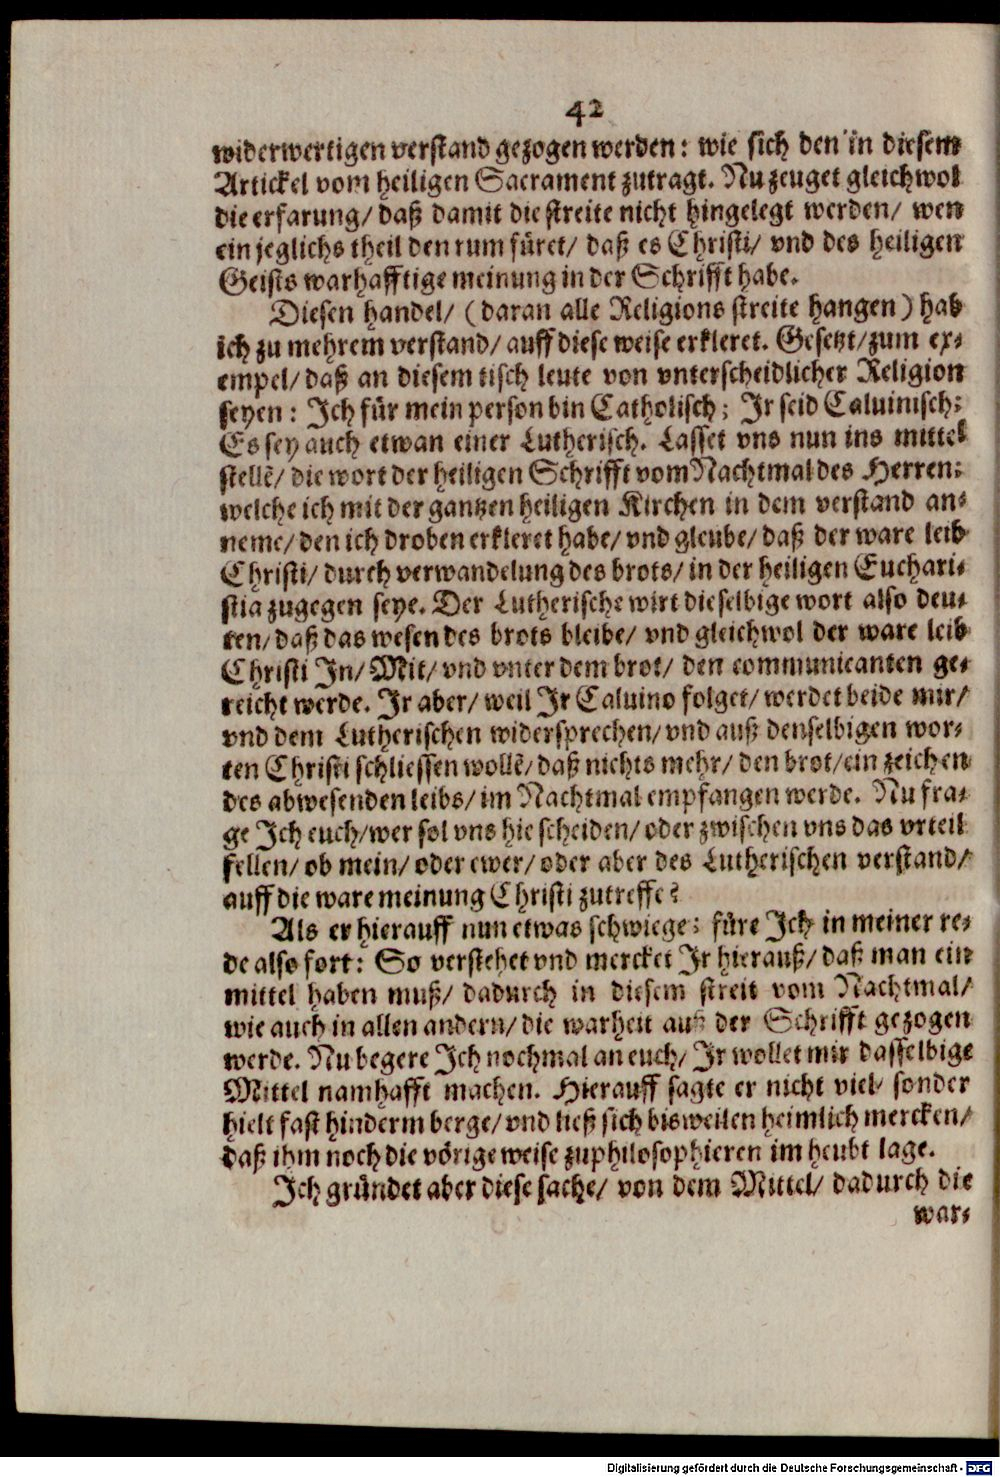 42
widerwertigen verstand gezogen werden: wie sich den in diesem
Artickel vom heiligen Sacrament zutragt. Nu zeuget gleichwol
die erfarung/ daß damit die streite nicht hingelegt werden/ wen
ein jeglichs theil den rum füret/ daß es Christi/ vnd des heiligen
Geists warhafftige meinung in der Schrifft habe.
Diesen handel/ (daran alle Religions streite hangen) hab
ich zu mehrem verstand/ auff diese weise erkleret. Gesetzt/ zum ex⸗
empel/ daß an diesem tisch leute von vnterscheidlicher Religion
seyen: Ich für mein person bin Catholisch; Ir seid Caluinisch;
Es sey auch etwan einer Lutherisch. Lasset vns nun ins mittel
stellẽ/ die wort der heiligen Schrifft vom Nachtmal des Herren:
welche ich mit der gantzen heiligen Kirchen in dem verstand an⸗
neme/ den ich droben erkleret habe/ vnd gleube/ daß der ware leib
Christi/ durch verwandelung des brots/ in der heiligen Euchari⸗
stia zugegen seye. Der Lutherische wirt dieselbige wort also deu⸗
ten/ daß das wesen des brots bleibe/ vnd gleichwol der ware leib
Christi In/ Mit/ vnd vnter dem brot/ den communicanten ge⸗
reicht werde. Ir aber/ weil Ir Caluino folget/ werdet beide mir/
vnd dem Lutherischen widersprechen/ vnd auß denselbigen wor⸗
ten Christi schliessen wollẽ/ daß nichts mehr/ den brot/ ein zeichen
des abwesenden leibs/ im Nachtmal empfangen werde. Nu fra⸗
ge Ich euch/ wer sol vns hie scheiden/ oder zwischen vns das vrteil
fellen/ ob mein/ oder ewer/ oder aber des Lutherischen verstand/
auff die ware meinung Christi zutreffe?
Als er hierauff nun etwas schwiege; füre Ich in meiner re⸗
de also fort: So verstehet vnd mercket Ir hierauß/ daß man ein
mittel haben muß/ dadurch in diesem streit vom Nachtmal/
wie auch in allen andern/ die warheit auß der Schrifft gezogen
werde. Nu begere Ich nochmal an euch/ Ir wollet mir dasselbige
Mittel namhafft machen. Hierauff sagte er nicht viel/ sonder
hielt fast hinderm berge/ vnd ließ sich bisweilen heimlich mercken/
daß ihm noch die vörige weise zuphilosophieren im heubt lage.
Ich gründet aber diese sache/ von dem Mittel/ dadurch die
war⸗
Digitalisierung gefördert durch die Deutsche Forschungsgemeinschaft - DFG